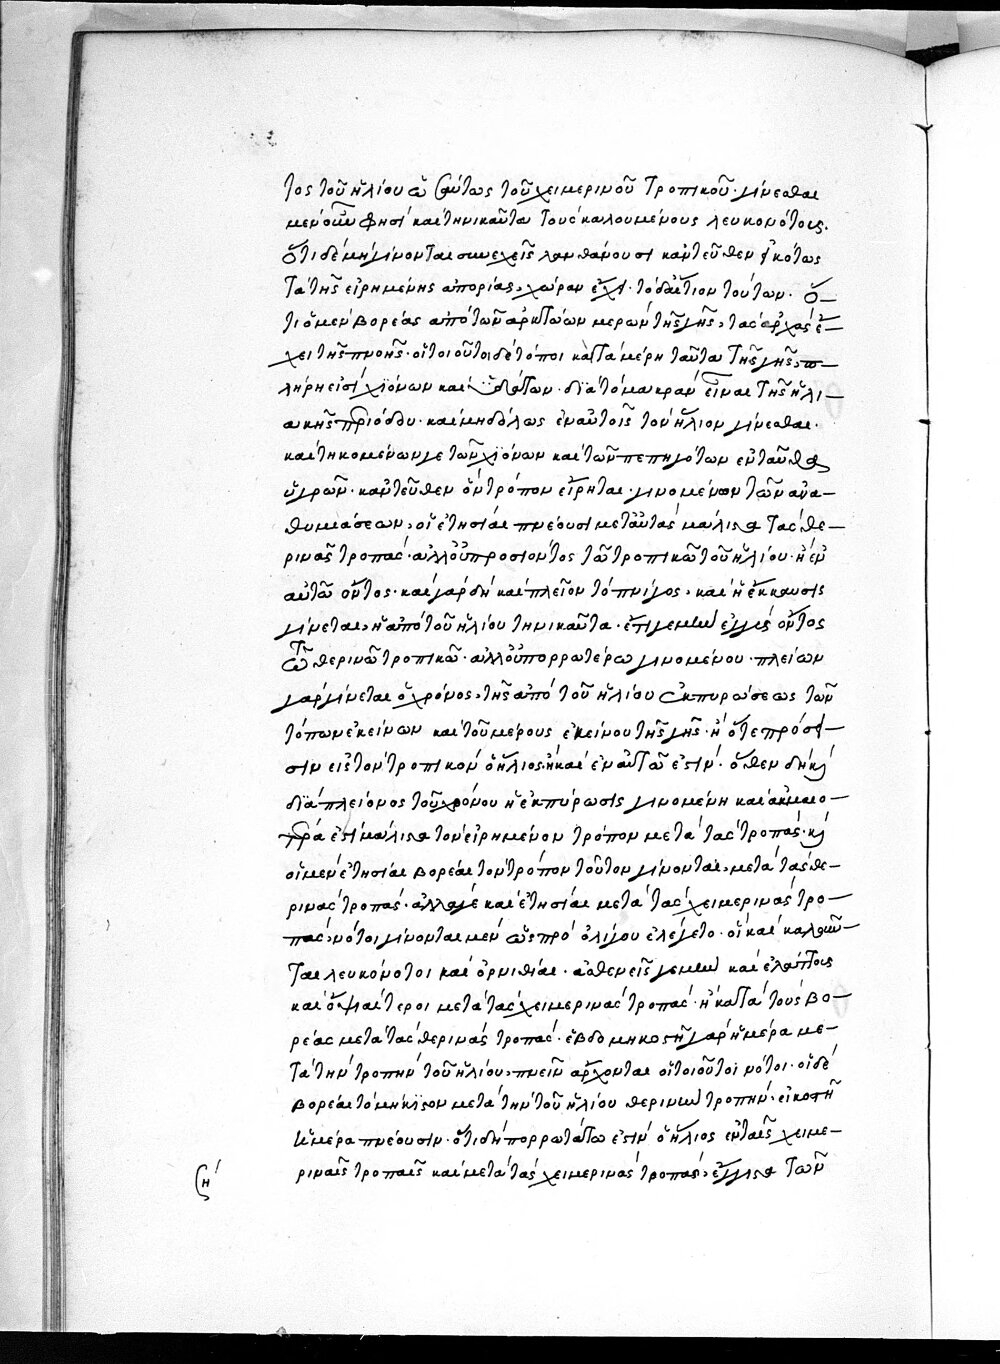 τος τοῦ ἡλίου ὡσαύτως τοῦ χειμερινοῦ τροπικοῦ· γίνεσθαι
μὲν οὖν φησὶ καὶ τηνικαῦτα τοὺς καλουμένους λευκονότους.
ὅτι δὲ μὴ γίνονται συνεχεῖς λανθάνουσι κἀντεῦθεν εἰκότως
τὰ τῆς εἰρημένης ἀπορίας, χώραν ἔχει· τὸ δ' αἴτιον τούτων. ὅ-
τι ὁ μὲν βορέας ἀπὸ τῶν ἀρκτώων μερῶν τῆς γῆς, τὰς ἀρχὰς ἔ-
χει τῆς πνοῆς· οἵτοι οὗτοι δὲ τόποι κατὰ μέρη ταῦτα τῆς γῆς,
πλήρη εἰσὶ χιόνων καὶ ὑδάτων· διὰ τὸ μακρὰν εἶναι τῆς ἡλι-
ακῆς περιόδου· καὶ μηδόλως ἐν αὐτοῖς τὸν ἥλιον γίνεσθαι.
καὶ τηκομένων γε τῶν χιόνων καὶ τῶν πεπηγότων ἐνταῦθα
ὑγρῶν· κἀντεῦθεν ὃν τρόπον εἴρηται· γινομένων τῶν ἀνα-
θυμιάσεων, οἱ ἐτησίαι πνέουσι μετ' αὐτὰς μάλιστα τὰς θε-
ρινὰς τροπάς· ἀλλ' οὐ προσιόντος τῶ τροπικῶ τοῦ ἡλίου· ἢ ἐν
αὐτῶ ὄντος· καὶ γὰρ δὴ καὶ πλεῖον τὸ πνίγος, καὶ ἡ ἔκκαυσις
γίνεται, ἡ ἀπὸ τοῦ ἡλίου τηνικαῦτα· ἔτι γε μὴν ἐγγὺς ὄντος
τῶ θερινῶ τροπικῶ· ἀλλ' οὐ πορρωτέρω γινομένου· πλείων
γὰρ γίνεται ὁ χρόνος, τῆς ἀπὸ τοῦ ἡλίου ἐκπυρώσεως τῶν
τόπων ἐκείνων καὶ τοῦ μέρους ἐκείνου τῆς γῆς· ἢ ὅτε πρόσει-
σιν εἰς τὸν τροπικὸν ὁ ἥλιος, ἢ καὶ ἐν αὐτῶ ἐστίν· ὅθεν δὴ καὶ
διὰ πλείονος τοῦ χρόνου ἡ ἐκπύρωσις γινομένη καὶ ἀκμαιο-
τέρα ἐστὶ μάλιστα τὸν εἰρημένον τρόπον μετὰ τὰς τροπάς· καὶ
οἱ μὲν ἐτησίαι βορέαι τὸν τρόπον τοῦτον γίνονται, μετὰ τὰς θε-
ρινὰς τροπάς· ἀλλά γε καὶ ἐτησίαι μετὰ τὰς χειμερινὰς τρο-
πάς, νότοι γίνονται μὲν ὡς πρὸ ὀλίγου ἐλέγετο· οἳ καὶ καλοῦν-
ται λευκόνοτοι καὶ ὀρνιθίαι· ἀσθενεῖς γε μὴν καὶ ἐλάττους
καὶ ὀψιαίτεροι μετὰ τὰς χειμερινὰς τροπάς· ἢ κατὰ τοὺς βο-
ρέας μετὰ τὰς θερινὰς τροπάς· ἑβδομηκοστῆ γὰρ ἡμέρα με-
τὰ τὴν τροπὴν τοῦ ἡλίου, πνεῖν ἄρχονται οἵτοι οὗτοι νότοι· οἱ δὲ
βορέαι τὸ μήκιστον μετὰ τὴν τοῦ ἡλίου θερινὴν τροπήν· εἰκοστῆ
ἡμέρα πνέουσιν· ὅτι δὴ πορρωτάτω ἐστὶν ὁ ἥλιος ἐν ταῖς χειμε-
ριναῖς τροπαῖς καὶ μετὰ τὰς χειμερινὰς τροπάς, ἔγγιστα τῶν